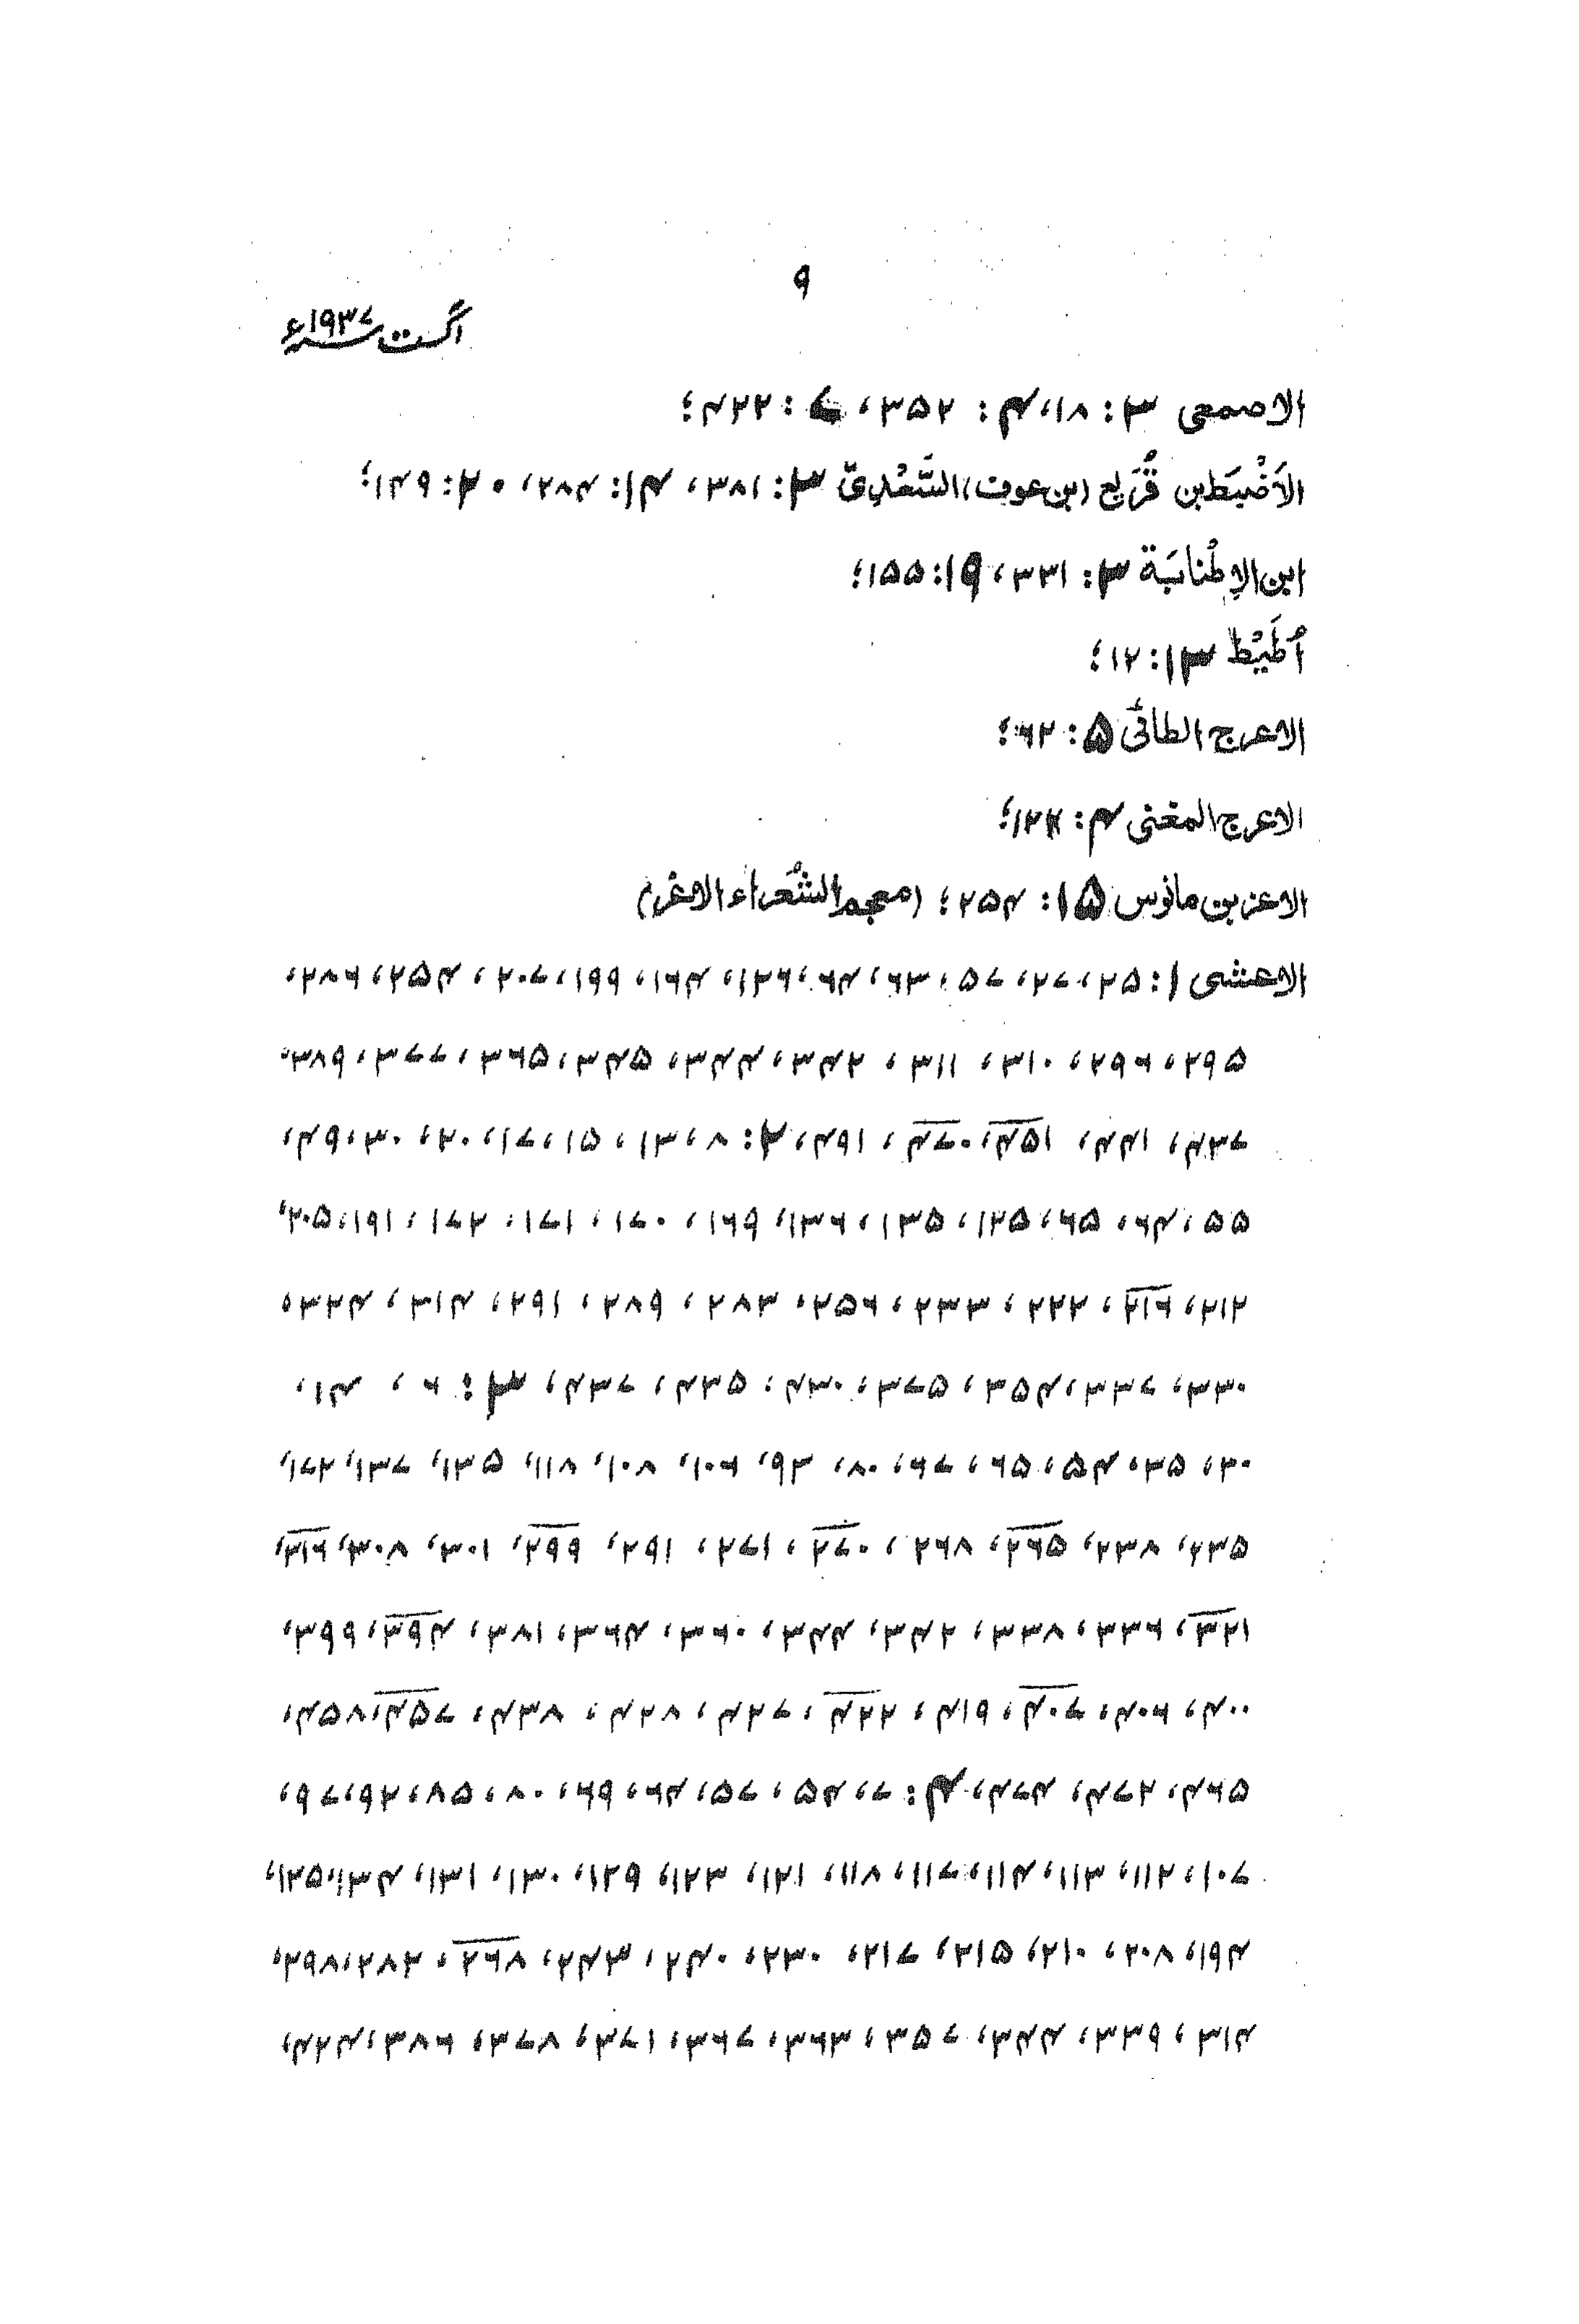 ۹
اگست سنہ ۱۹۳۷ء
الاصمعی ۳: ۱۸، ۴: ۳۵۲، ۷: ۴۲۲؛
الاَضْبَط بن قُرَیع (بن عوف) السَّعْدِیّ ۳: ۳۸۱، ۱۴: ۲۸۴، ۲۰: ۱۴۹؛
ابن الاِطْنابَة ۳: ۳۳۱، ۱۹: ۱۵۵؛
اُطَیْط ۱۳: ۱۲؛
الاعرج الطائی ۵: ۶۲؛
الاعرج المغنی ۴: ۱۲۲؛
الاعز بن مانوس ۱۵: ۲۵۴؛ (معجم الشُعراء الاغر)
الاعشی ۱: ۲۵، ۲۷، ۵۷، ۶۳، ۶۴، ۱۲۶، ۱۶۴، ۱۹۹، ۲۰۷، ۲۵۴، ۲۸۶،
۲۹۵، ۲۹۶، ۳۱۰، ۳۱۱، ۳۴۲، ۳۴۴، ۳۴۵، ۳۶۵، ۳۷۷، ۳۸۹،
۴۳۷، ۴۴۱، ۴۵۱، ۴۷۰، ۴۹۱، ۲: ۸، ۱۳، ۱۵، ۱۷، ۲۰، ۳۰، ۴۹،
۵۵، ۶۴، ۶۵، ۱۲۵، ۱۳۵، ۱۳۶، ۱۶۹، ۱۷۰، ۱۷۱، ۱۷۲، ۱۹۱، ۲۰۵،
۲۱۲، ۲۱۶، ۲۲۲، ۲۳۳، ۲۵۶، ۲۸۳، ۲۸۹، ۲۹۱، ۳۱۴، ۳۲۴،
۳۳۰، ۳۳۷، ۳۵۴، ۳۷۵، ۴۳۰، ۴۳۵، ۴۳۷، ۳: ۶، ۱۴،
۳۰، ۳۵، ۵۴، ۶۵، ۶۷، ۸۰، ۹۳، ۱۰۶، ۱۰۸، ۱۱۸، ۱۳۵، ۱۳۷، ۱۷۲،
۲۳۵، ۲۳۸، ۲۶۵، ۲۶۸، ۲۷۰، ۲۷۱، ۲۹۱، ۲۹۹، ۳۰۱، ۳۰۸، ۳۱۶،
۳۲۱، ۳۳۶، ۳۳۸، ۳۴۲، ۳۴۴، ۳۶۰، ۳۶۴، ۳۸۱، ۳۹۴، ۳۹۹،
۴۰۰، ۴۰۶، ۴۰۷، ۴۱۹، ۴۲۲، ۴۲۷، ۴۲۸، ۴۳۸، ۴۵۷، ۴۵۸،
۴۶۵، ۴۷۲، ۴۷۴، ۴: ۷، ۵۴، ۵۷، ۶۴، ۶۹، ۸۰، ۸۵، ۹۲، ۹۷،
۱۰۷، ۱۱۲، ۱۱۳، ۱۱۴، ۱۱۷، ۱۱۸، ۱۲۱، ۱۲۳، ۱۲۹، ۱۳۰، ۱۳۱، ۱۳۴، ۱۲۵،
۱۹۴، ۲۰۸، ۲۱۰، ۲۱۵، ۲۱۷، ۲۳۰، ۲۴۰، ۲۴۳، ۲۶۸، ۲۸۲، ۲۹۸،
۳۱۴، ۳۳۹، ۳۴۴، ۳۵۷، ۳۶۳، ۳۶۷، ۳۷۱، ۳۷۸، ۳۸۶، ۴۲۴،